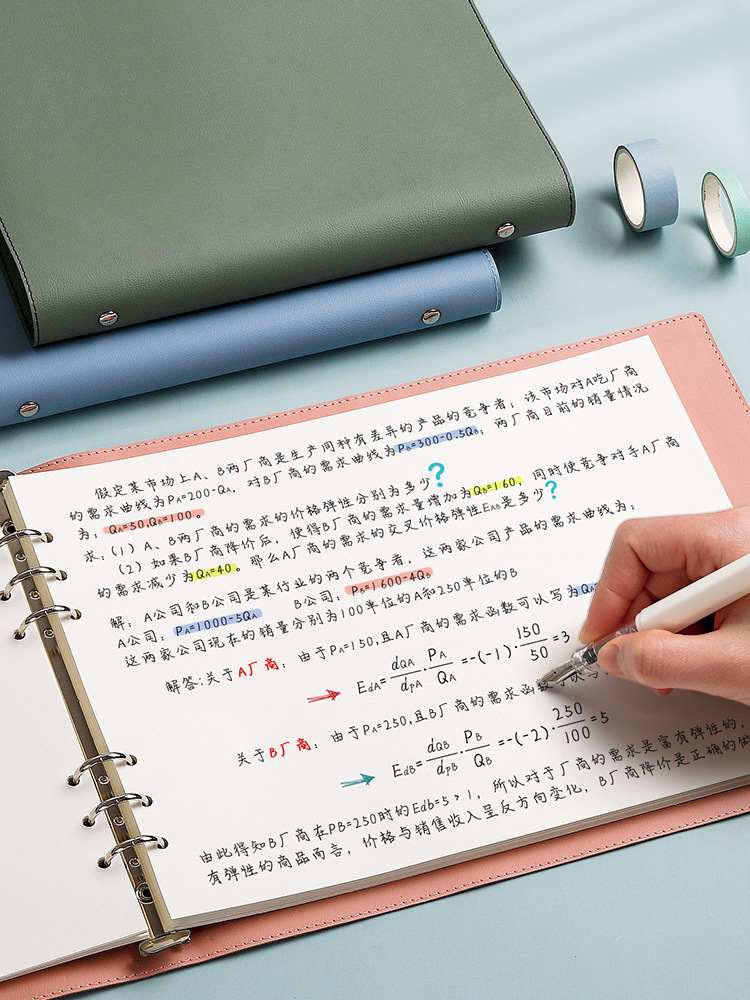 假定某市场上A、B两厂商是生产同种有差异的产品的竞争者；该市场对A吃厂商
的需求曲线为PA=200-QA，对B厂商的需求曲线为PB=300-0.5QB；两厂商目前的销量情况
为：QA=50,QB=100。
求：(1) A、B两厂商的需求的价格弹性分别为多少？
(2) 如果B厂商降价后，使得B厂商的需求量增加为QB=160，同时使竞争对手A厂商
的需求减少为QA=40。那么A厂商的需求的交叉价格弹性EAB是多少？
解：A公司和B公司是某行业的两个竞争者，这两家公司产品的需求曲线为：
A公司：PA=1000-5QA B公司：PB=1600-4QB
这两家公司现在的销量分别为100单位的A和250单位的B
解答:关于A厂商：由于PA=150,且A厂商的需求函数可以写为QA
EdA=-dQA/dPA·PA/QA=-(-1)·150/50=3
关于B厂商：由于PA=250,且B厂商的需求函数可以写
EdB=-dQB/dPB·PB/QB=-(-2)·250/100=5
由此得知B厂商在PB=250时的Edb=5>1，所以对于厂商的需求是富有弹性的，
有弹性的商品而言，价格与销售收入呈反方向变化，B厂商降价是正确的